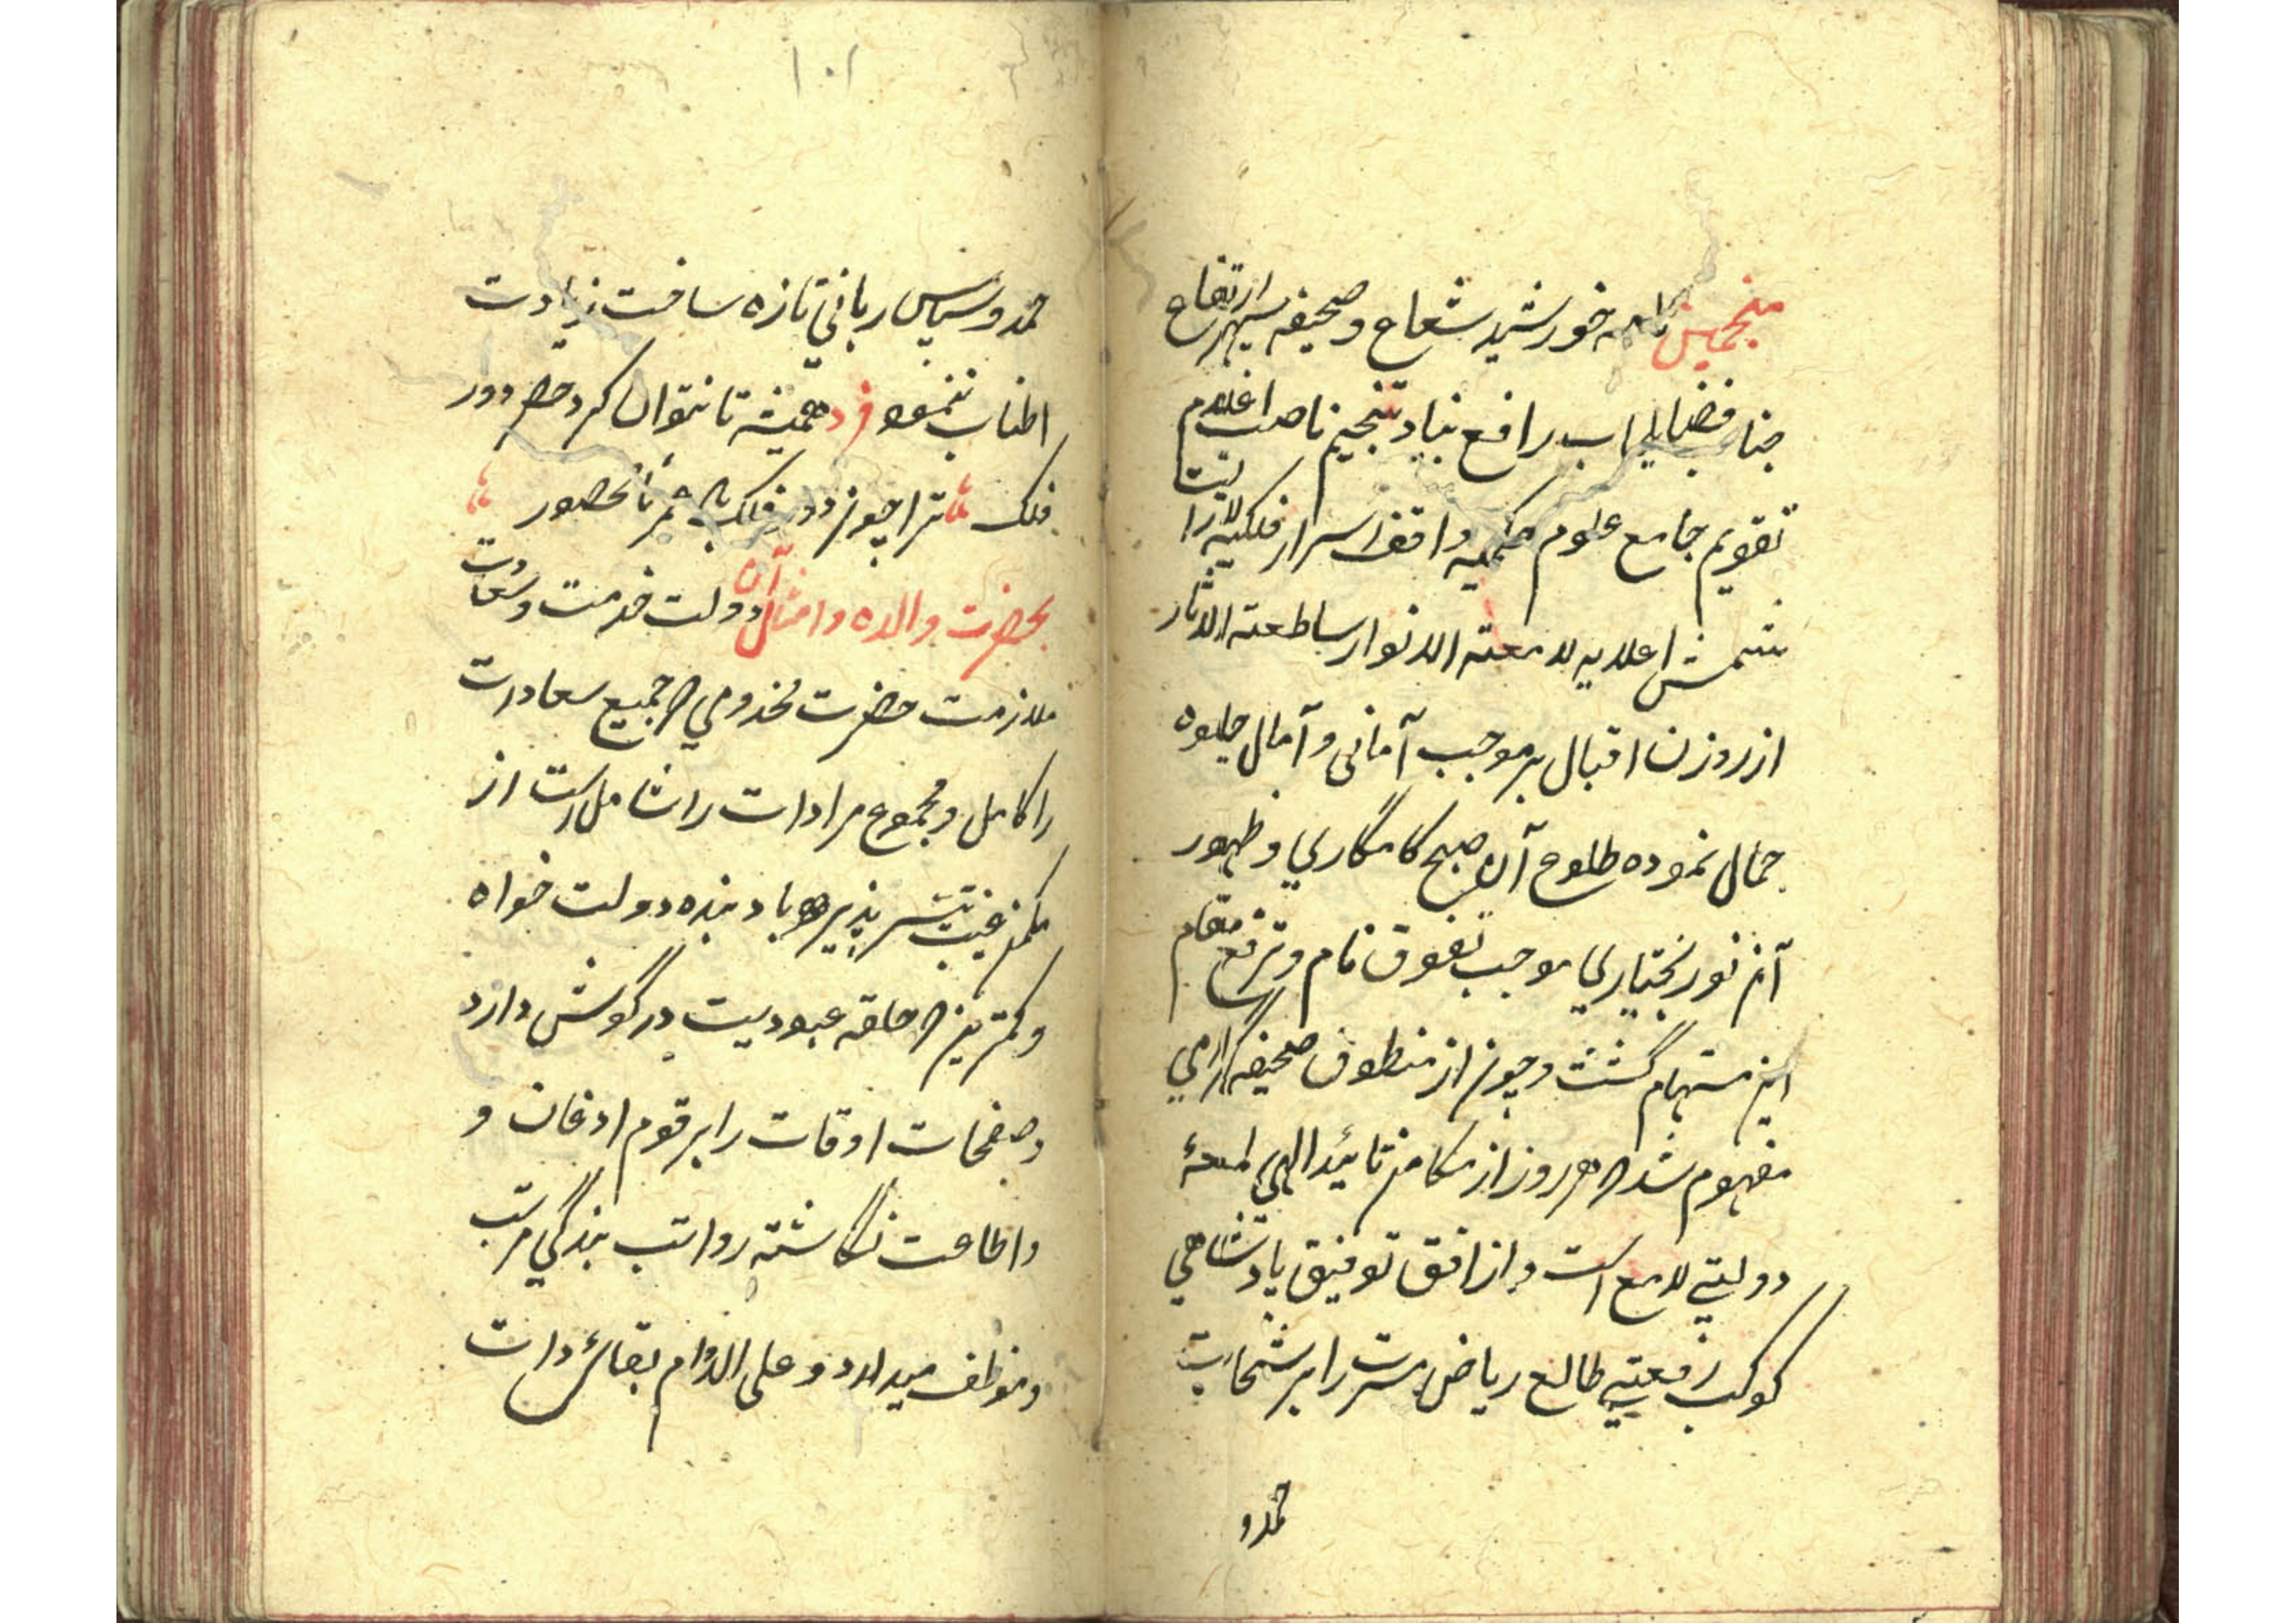 منجمین نامه خورشید شعاع و صحیفه سپهر ارتفاع
جناب فضایلمآب رافع بنیاد تنجیم ناصب اعلام
تقویم جامع علوم حکمیه واقف اسرار فلکیه لازالت
شمس اعلایه لامعته الانوار ساطعته الاثار
از روزن اقبال بر موجب آمانی و آمال جلوه
جمال نموده طلوع آن صبح کامگاری و ظهور
آن نور بختیاری موجب تفوق نام و ترفع مقام
این مستهام گشت و چون از منطوق صحیفه گرامی
مفهوم شد که هر روز از مکامن تائید الهی لمعهٔ
دولتی لامع است و از افق توفیق پادشاهی
کوکب رفعتی طالع ریاض مسرت را برشحات
حمد و
۱۰۱
حمد و سپاس ربانی تازه ساخت زیادت
اطناب ننمود فرد همیشه تا نتوان کرد حصر دور
فلک ترا چون دور فلک باد عمر نامحصور
بحضرت والده و امثال آن دولت خدمت و سعادت
ملازمت حضرت مخدومی که جمیع سعادات
را کامل و مجموع مرادات را شامل است از
مکمن غیب تیسر پذیر باد بنده دولت خواه
و کمترین که حلقه عبودیت در گوش دارد
و صفحات اوقات را برقوم اذعان و
و اطاعت نگاشته رواتب بندگی مرتب
و موظف میدارد و علی الدوام بقائی ذات